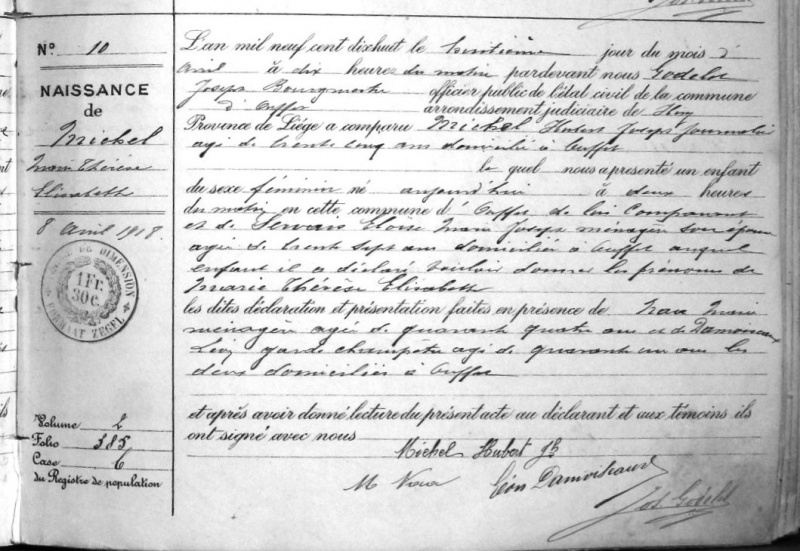 N° 10
NAISSANCE
de
Michel
Marie Thérèse
Elisabeth
8 avril 1918.
DE DIMENSION
1 Fr.
30c.
FORMAAT ZEGEL
Volume 2
Folio 385
Case 6
du Registre de population
L'an mil neuf cent dixhuit le huitième jour du mois d'
avril à dix heures du matin pardevant nous Godelet
Joseph Bourgmestre officier public de l'état civil de la commune
d'Ouffet arrondissement judiciaire de Huy
Province de Liége a comparu Michel Hubert Joseph journalier
agé de trente cinq ans domicilié à Ouffet
le quel nous a présenté un enfant
du sexe féminin né aujourd'hui à deux heures
du matin en cette commune d'Ouffet de lui Comparant
et de Servais Eloïse Marie Joseph ménagère son épouse
agée de trente sept ans domiciliés à Ouffet auquel
enfant il a déclaré vouloir donner les prénoms de
Marie Thérèse Elisabeth
les dites déclaration et présentation faites en présence de Marie
ménagère agée de quarante quatre ans et de Damoiseaux
Léon garde champêtre agé de quarante un ans les
deux domiciliés à Ouffet
et après avoir donné lecture du présent acte au déclarant et aux témoins ils
ont signé avec nous
Michel Hubert Jh
M Léon Damoiseaux
Jos. Godelet